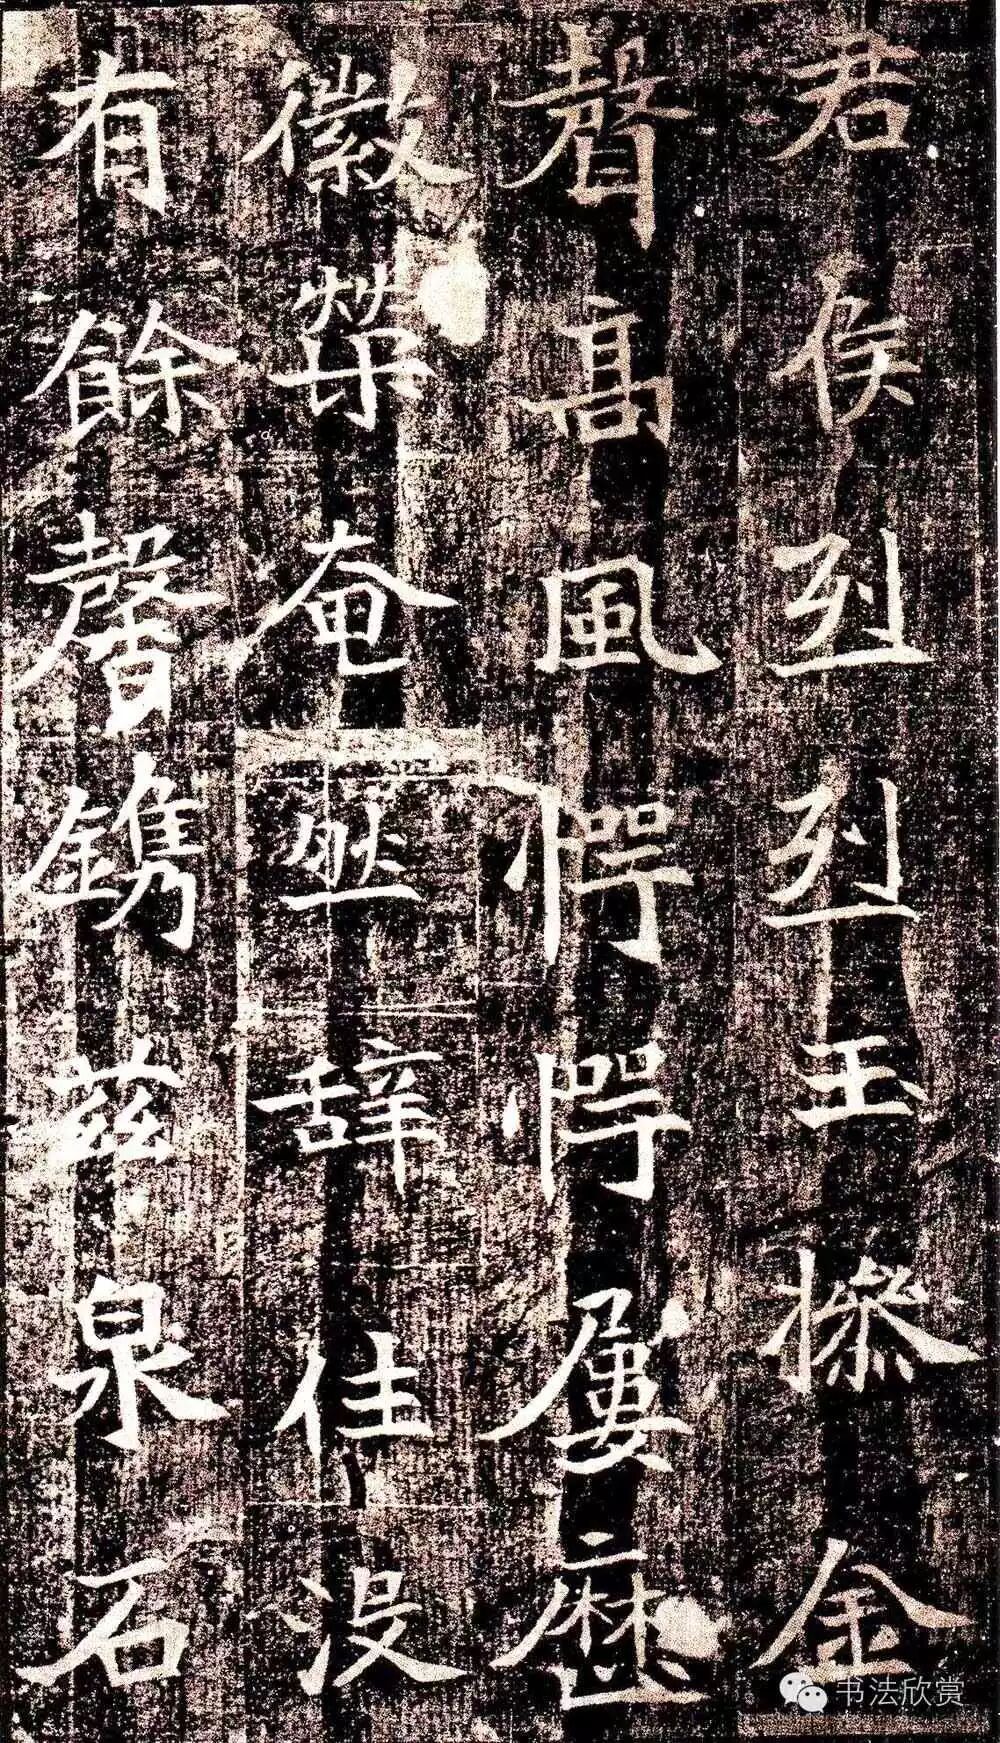 君侯烈烈玉摖金
聲高風愕愕屢歷
徽榮奄然辭往没
有餘馨鐫茲泉石
书法欣赏